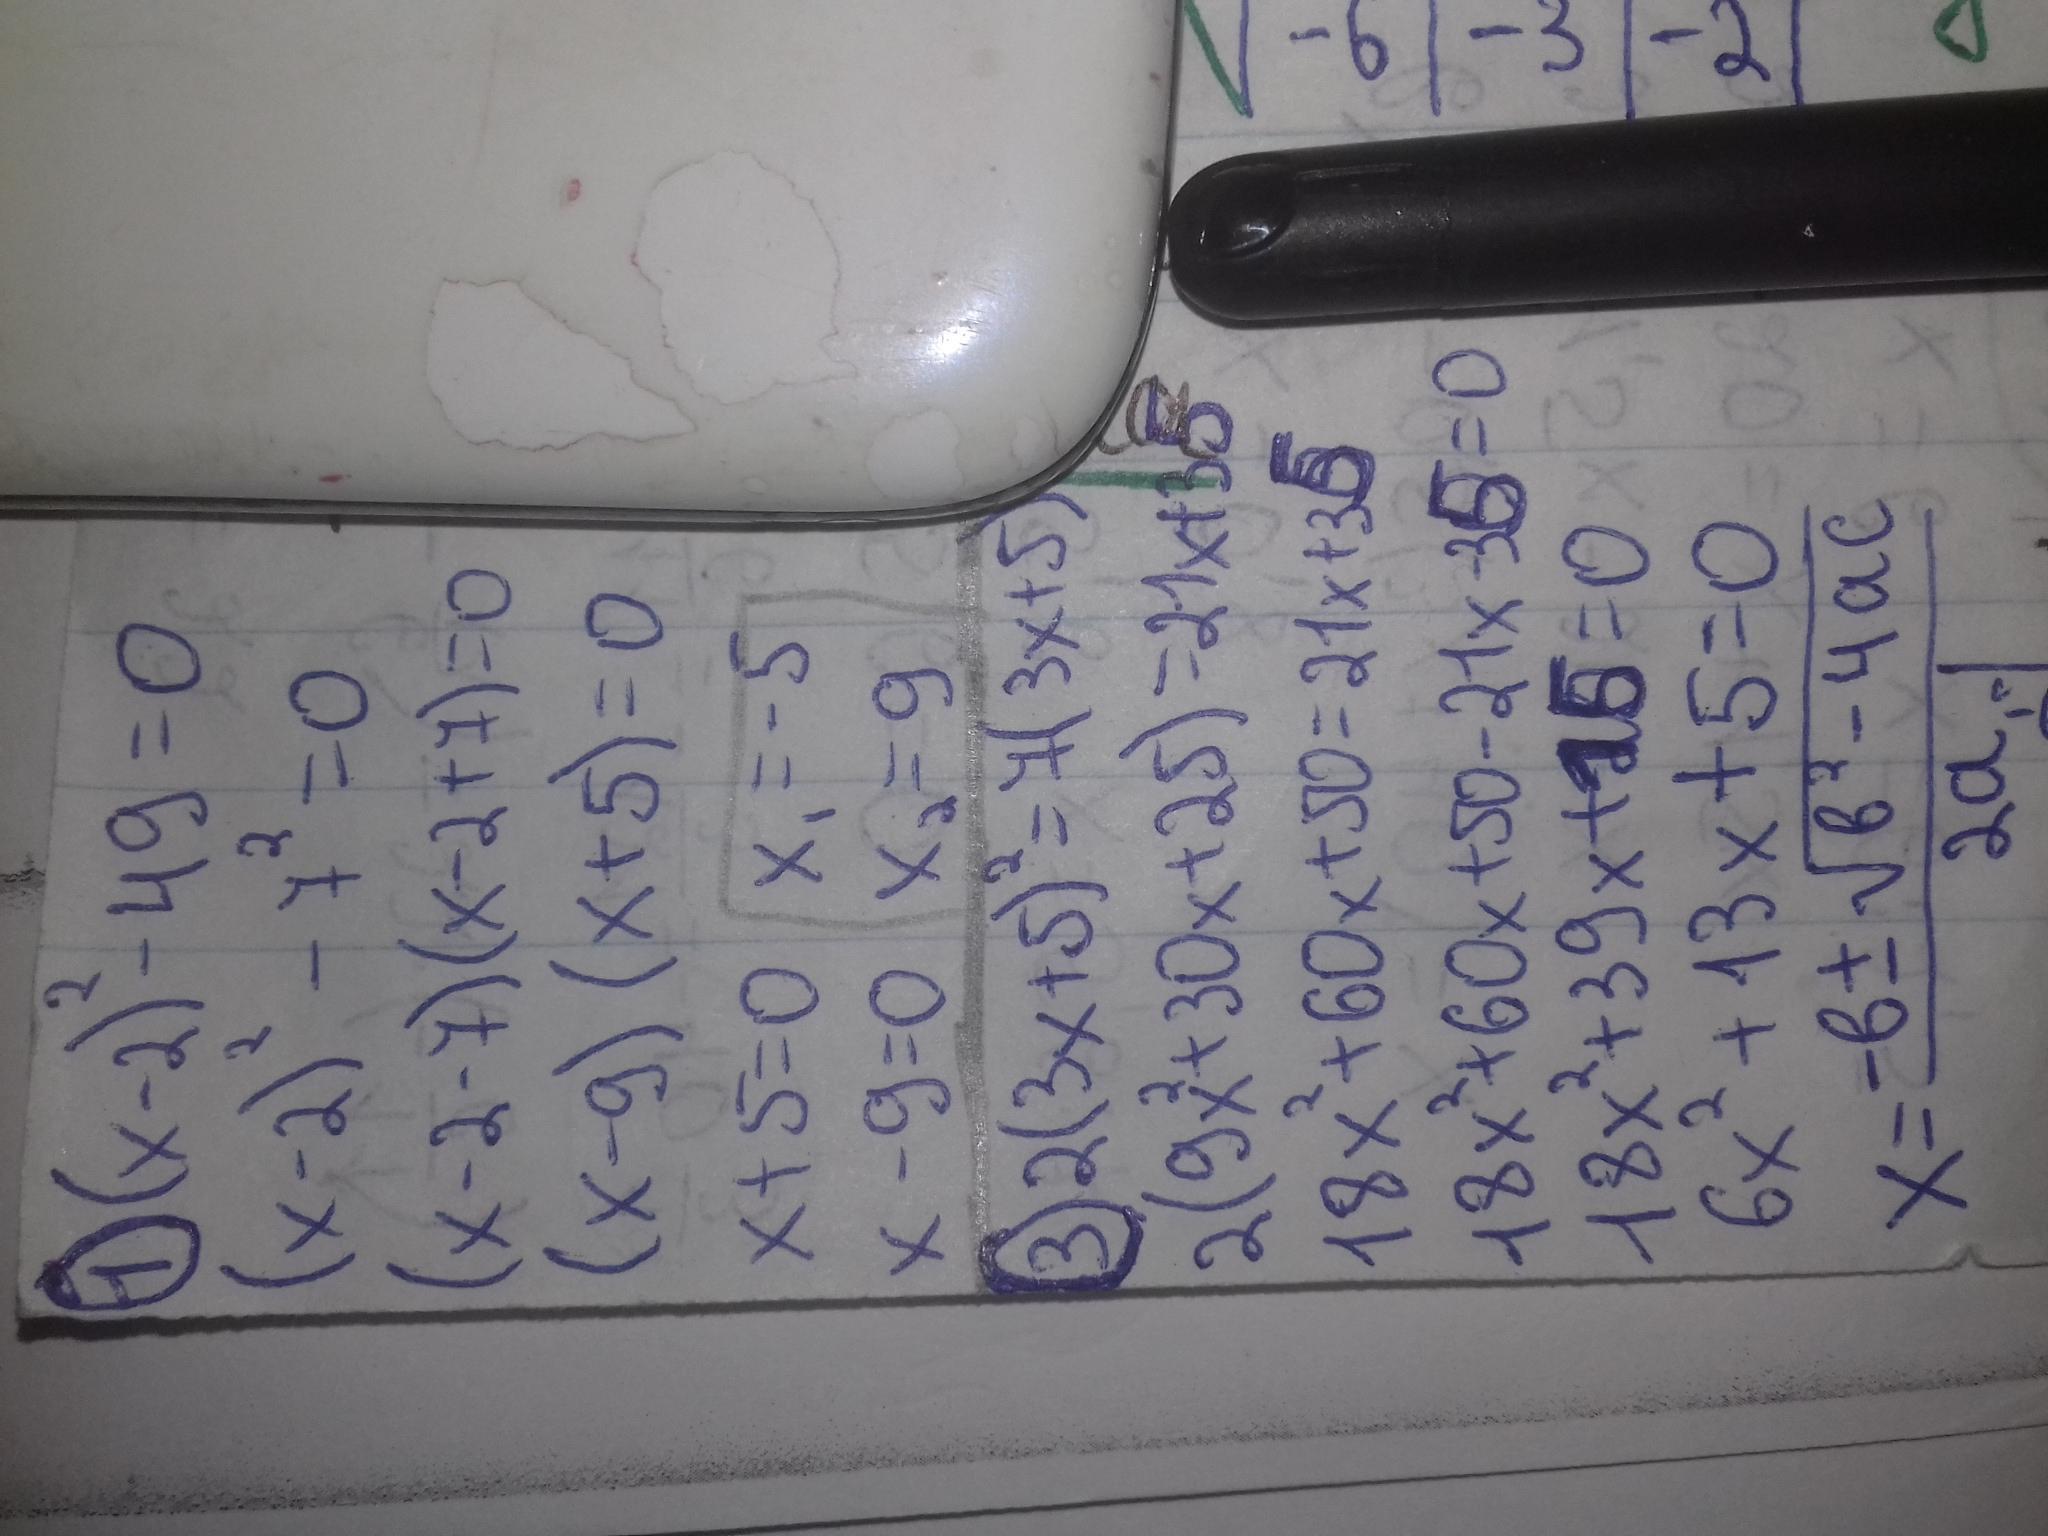 1) (x-2)² - 49 = 0
(x-2)² - 7² = 0
(x-2-7)(x-2+7)=0
(x-9)(x+5)=0
x+5=0 x₁=-5
x-9=0 x₂=9
3) 2(3x+5)²=7(3x+5)
2(9x²+30x+25)=21x+35
18x²+60x+50=21x+35
18x²+60x+50-21x-35=0
18x²+39x+15=0
6x²+13x+5=0
x = -b±√b²-4ac
2a
1 1 1
6 3 2